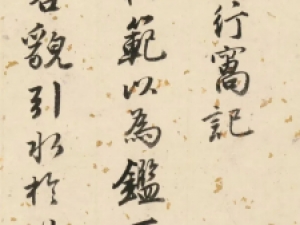 行窩記
範以為鑑
貌引水於